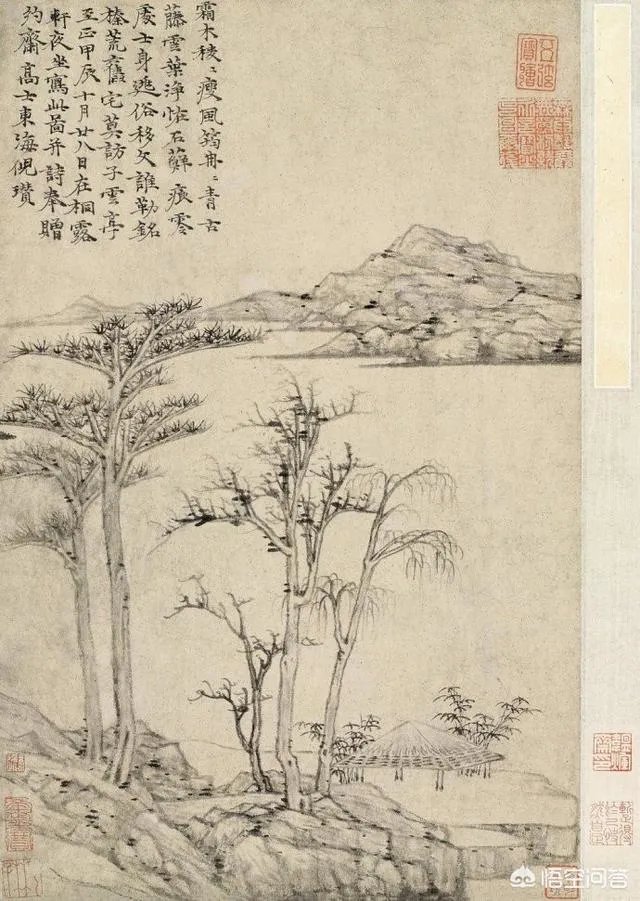 霜木稜〻瘦風筠冉〻青古
藤雲葉淨恠石蘚痕零
處士身逃俗移文誰勒銘
榛荒舊宅莫訪子雲亭
至正甲辰十月廿八日在桐露
軒夜坐寫此圖并詩奉贈
約齋高士東海倪瓚
悟空问答